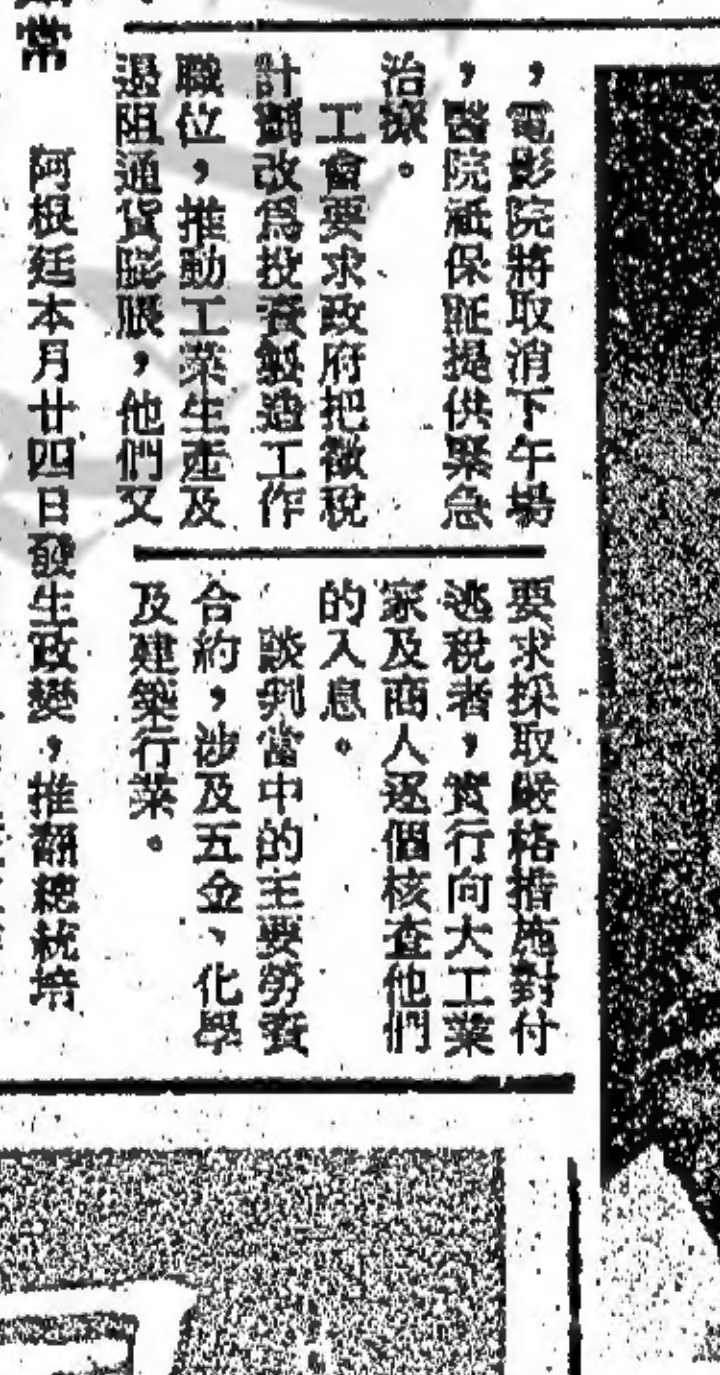 ，電影院將取消下午場
，醫院祗保証提供緊急
治療。
工會要求政府把徵稅
計劃改爲投資製造工作
職位，推動工業生產及
遏阻通貨膨脹，他們又
要求採取嚴格措施對付
逃稅者，實行向大工業
家及商人逐個核查他們
的入息。
談判當中的主要勞資
合約，涉及五金、化學
及建築行業。
常
阿根廷本月廿四日發生政變，推翻總統培